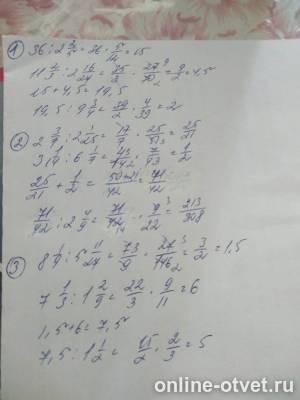 1) 36 : 2 2/5 = 36 · 5/12 = 15
11 2/3 : 2 16/27 = 35/3 · 27/70 = 9/2 = 4,5
15 + 4,5 = 19,5
19,5 : 9 3/4 = 39/2 · 4/39 = 2
2) 2 3/7 : 2 1/25 = 17/7 · 25/51 = 25/21
3 1/14 : 6 1/7 = 43/14 · 7/43 = 1/2
25/21 + 1/2 = 50+21/42 = 71/42
71/42 : 2 4/9 = 71/42 · 9/22 = 213/308
3) 8 1/9 : 5 11/27 = 73/9 · 27/146 = 3/2 = 1,5
7 1/3 : 1 2/9 = 22/3 · 9/11 = 6
1,5 + 6 = 7,5
7,5 : 1 1/2 = 15/2 · 2/3 = 5
online-otvet.ru